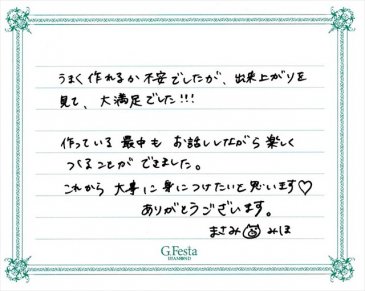 うまく作れるか不安でしたが、出来上がりを
見て、大満足でした!!!
作っている最中もお話ししながら楽しく
つくることができました。
これから大事に身につけたいと思います♡
ありがとうございます。
まさみ みほ
G.Festa
DIAMOND